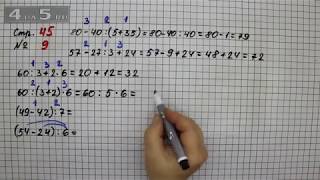 4 a 5
Стр. 45
№ 9
3 2 1
80-40:(5+35)=80-40:40=80-1=79
57-27:3+24=57-9+24=48+24=72
1 3 2
60:3+2·6=20+12=32
2 1 3
60:(3+2)·6=60:5·6=
1 2
(49-42):7=
(54-24):6=